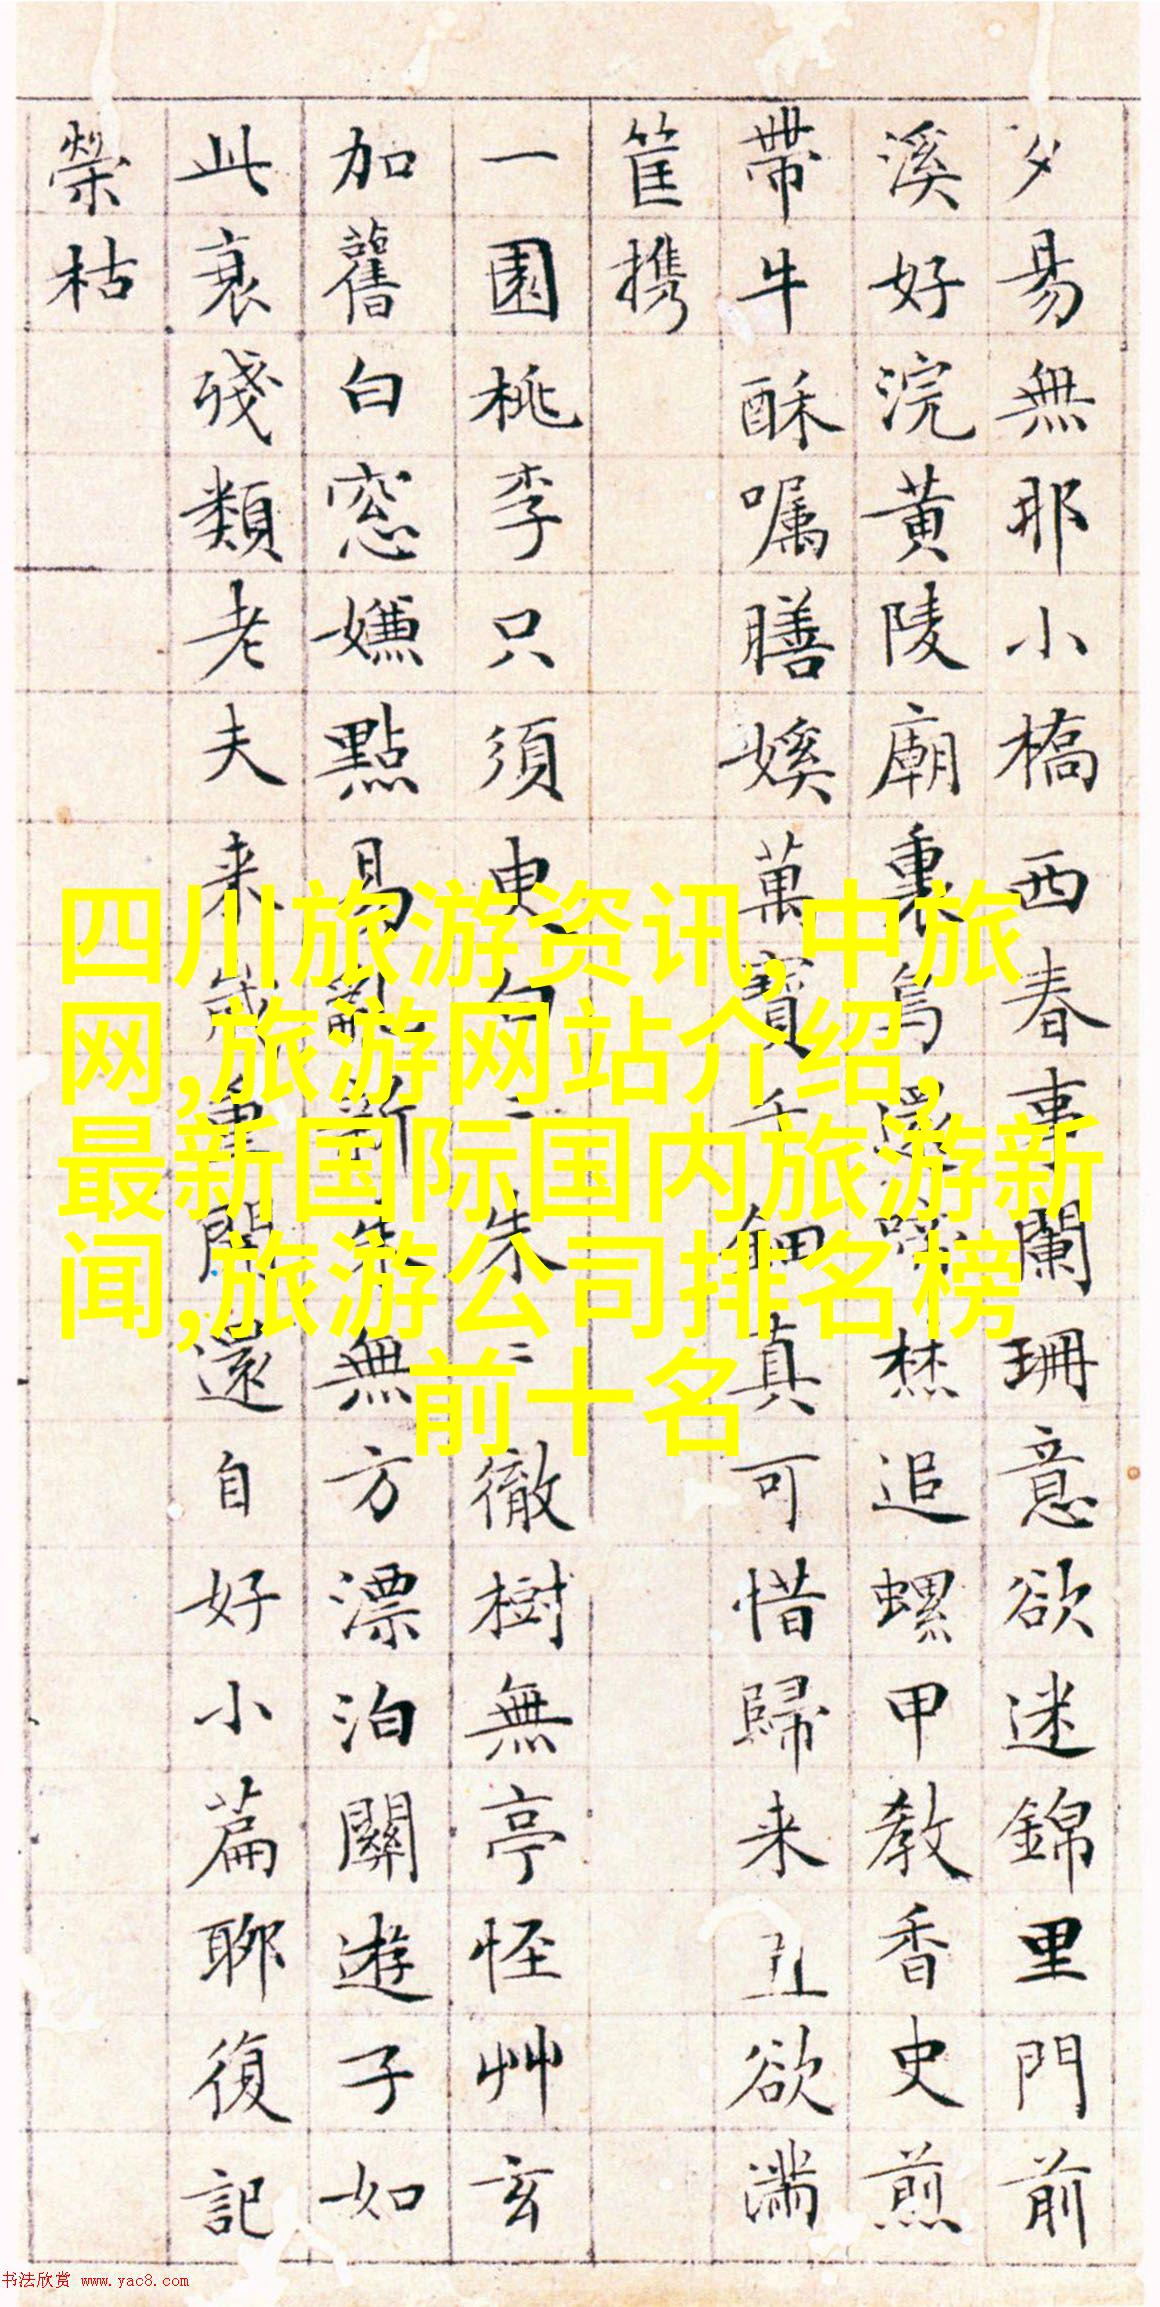 夕昜無那小橋西春事闌珊意欲迷錦里門前
溪好浣黄陵廟裏鳥還啼焚追螺甲教香史煎
帶牛酥嘱膳㜎萬寶千鈿真可惜歸来且欲滿
筐携
一園桃李只須臾白二朱二徹樹無亭恠艸玄
加舊白窓嫌點易亂新朱無方漂泊關遊子如
此衰殘類老夫来歲重開還自好小篇聊復記
榮枯
四川旅游资讯,中旅
网,旅游网站介绍,
最新国际国内旅游新
闻,旅游公司排名榜
前十名
书法欣赏 www.yac8.com